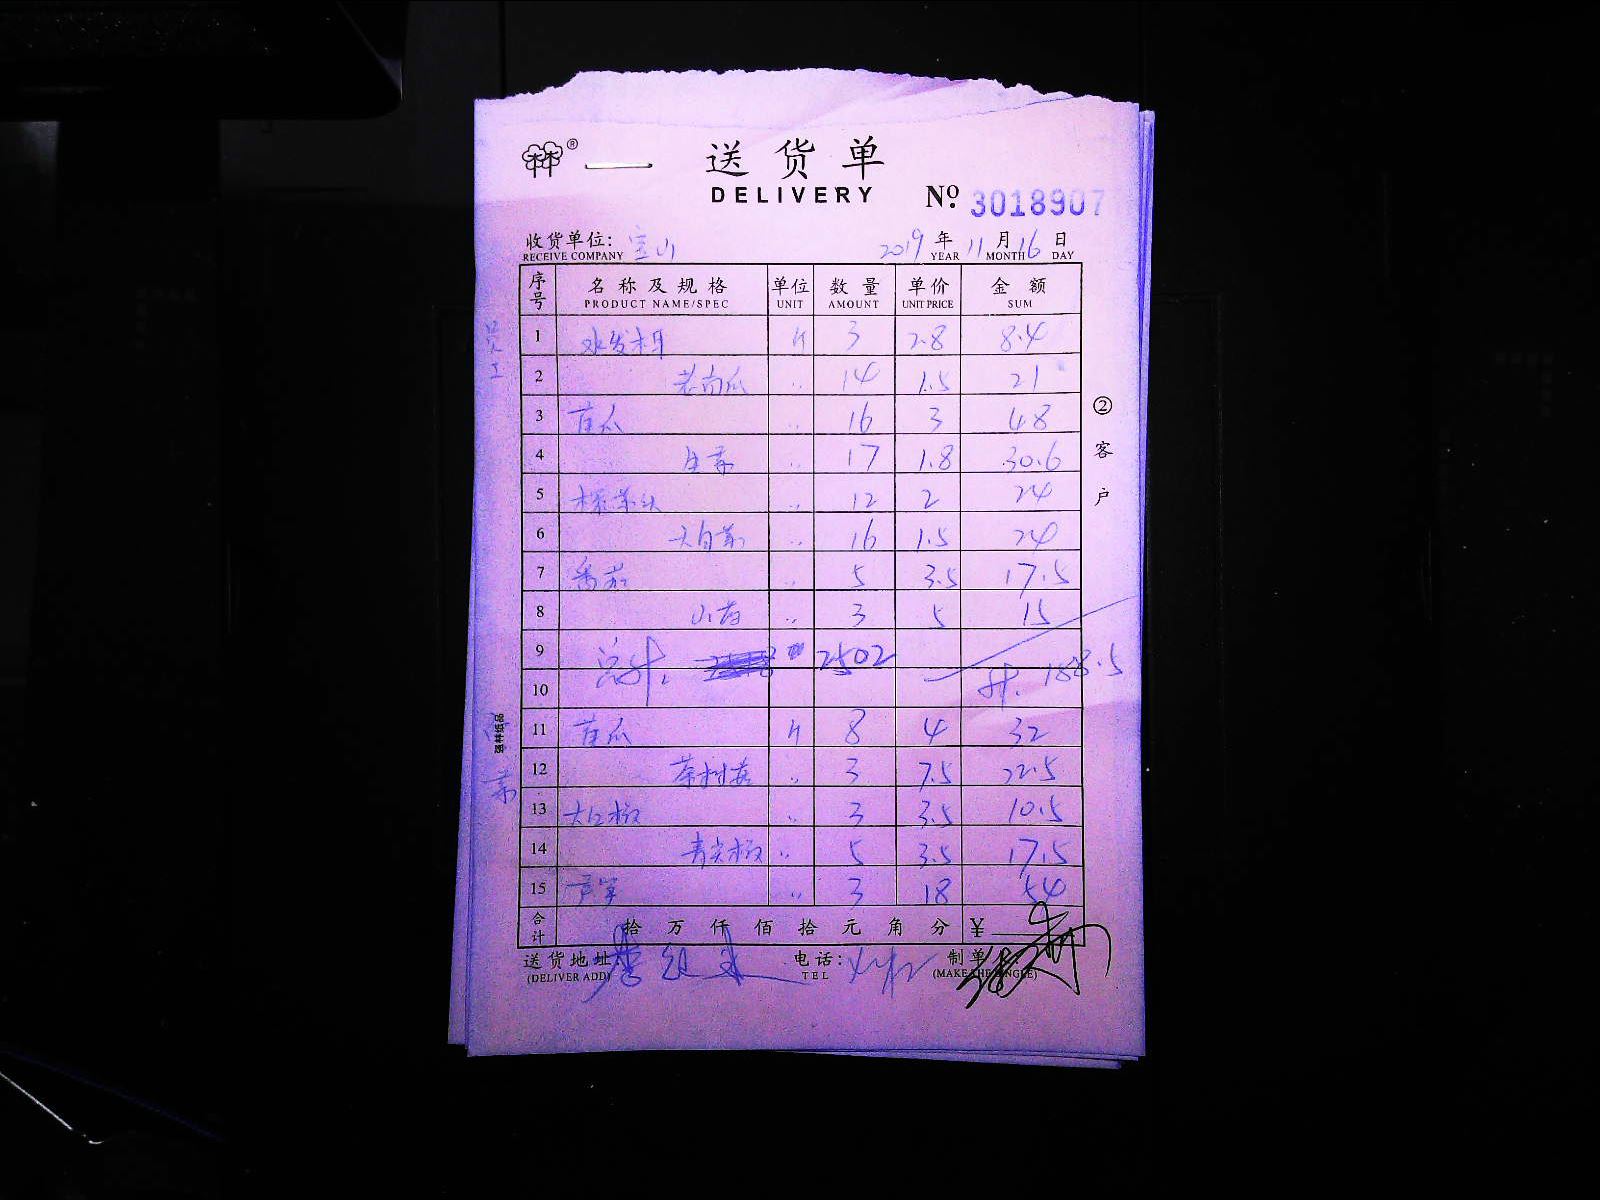 送货单
DELIVERY
№ 3018907
收货单位: 宝山 2019年11月16日
RECEIVE COMPANY YEAR MONTH DAY
序号 名称及规格 单位 数量 单价 金额
PRODUCT NAME/SPEC UNIT AMOUNT UNIT PRICE SUM
员工
1 水发木耳 斤 3 2.8 8.4
2 老南瓜 〃 14 1.5 21
3 黄瓜 〃 16 3 48
4 生菜 〃 17 1.8 30.6
5 榨菜头 〃 12 2 24
6 大白菜 〃 16 1.5 24
7 番茄 〃 5 3.5 17.5
8 山药 〃 3 5 15
9 总计: 2502
10 计. 188.5
11 黄瓜 斤 8 4 32
12 茶树菇 〃 3 7.5 22.5
13 大红椒 〃 3 3.5 10.5
14 青尖椒 〃 5 3.5 17.5
15 芦笋 〃 3 18 54
合计 拾万仟佰拾元角分 ¥
送货地址: 电话: 制单
(DELIVER ADD) TEL
②客户
强林纸品